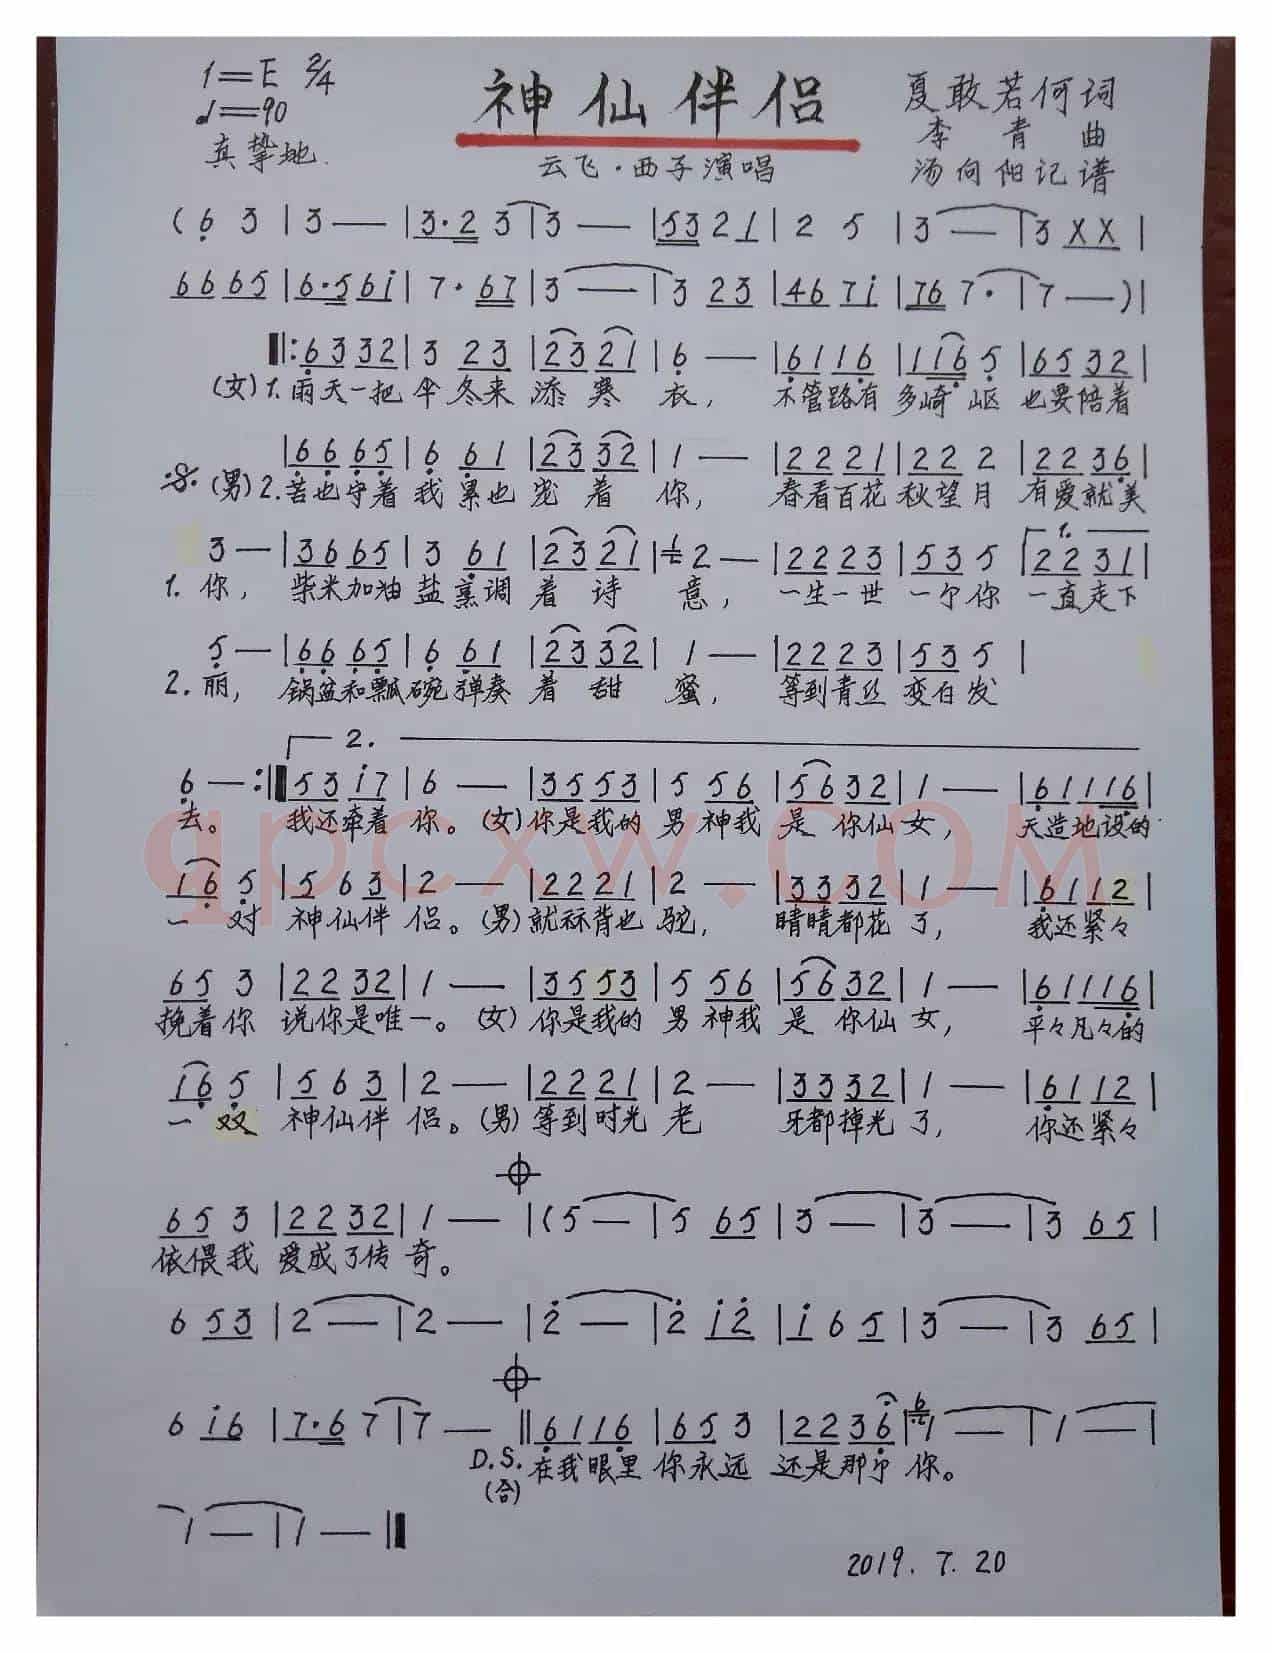 1=E 2/4
♩=90
真挚地
神仙伴侣
云飞·西子演唱
夏敢若何词
李青曲
汤向阳记谱
(6̣ 3 | 3 — | 3·2 3 | 3 — | 53 2 1 | 2 5 | 3 — | 3 X X |
66 65 | 6·5 6i | 7· 67 | 3 — | 3 23 | 46 7i | 76 7· | 7 — ) |
‖: 6̣3 32 | 3 23 | 23 21 | 6̣ — | 6̣1 16̣ | 116̣ 5̣ | 6̣5 32 |
(女) 1. 雨天一把 伞 冬来 添 寒 衣, 不管路有 多崎 岖 也要陪着
| 6̣6̣ 6̣5̣ | 6̣ 6̣1 | 23 32 | 1 — | 22 21 | 22 2 | 22 36̣ |
(男) 2. 苦也守着 我 累也 宠 着 你, 春看百花 秋望月 有爱就美
1.
3 — | 36 65 | 3 6̣1 | 23 21 | 2 — | 22 23 | 53 5 | 22 31 |
1. 你, 柴米加油 盐 烹调 着 诗 意, 一生一世 一个你 一直走下
5̣ — | 6̣6̣ 6̣5̣ | 6̣ 6̣1 | 23 32 | 1 — | 22 23 | 53 5 |
2. 丽, 锅盆和瓢 碗 弹奏 着 甜 蜜, 等到青丝 变白发
2.
6̣ — :‖ 53 i7 | 6 — | 35 53 | 5 56 | 56 32 | 1 — | 6̣1 116̣ |
去。 我还牵着 你。 (女) 你是我的 男 神我 是 你仙 女, 天造地设的
qpcxw.com
16̣ 5̣ | 5 6 3 | 2 — | 22 21 | 2 — | 33 32 | 1 — | 6̣1 12 |
一 对 神仙伴 侣。 (男) 就秝背也 驼, 睛睛都花 了, 我还紧々
65 3 | 22 32 | 1 — | 35 53 | 5 56 | 56 32 | 1 — | 6̣1 116̣ |
挽着你 说你是唯 一。 (女) 你是我的 男 神我 是 你仙 女, 平々凡々的
16̣ 5̣ | 5 6 3 | 2 — | 22 21 | 2 — | 33 32 | 1 — | 6̣1 12 |
一 双 神仙伴 侣。 (男) 等到时光 老 牙都掉光 了, 你还紧々
65 3 | 22 32 | 1 — | (5 — | 5 65 | 3 — | 3 — | 3 65 |
依偎我 爱成了传 奇。
6 53 | 2 — | 2 — | 2̇ — | 2̇ i2̇ | i 6 5 | 3 — | 3 65 |
6 i6 | 7·6 7 | 7 — ‖ 6̣1 16̣ | 65 3 | 22 36̣ | 1 — | 1 — |
D.S. (合) 在我眼里 你永远 还是那个 你。
1 — | 1 — ‖
2019.7.20